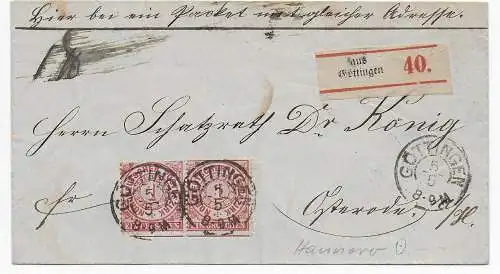 Hier bei ein Packet mit gleicher Adresse.
aus
Göttingen
40.
Herrn Schatzrath Dr König
GÖTTINGEN
5
5
8-9 M
GÖTTINGEN
5
5
8-9 M
GÖTTINGEN
5
5
8-9 M
fr
Osterode. a/H.
Hannover